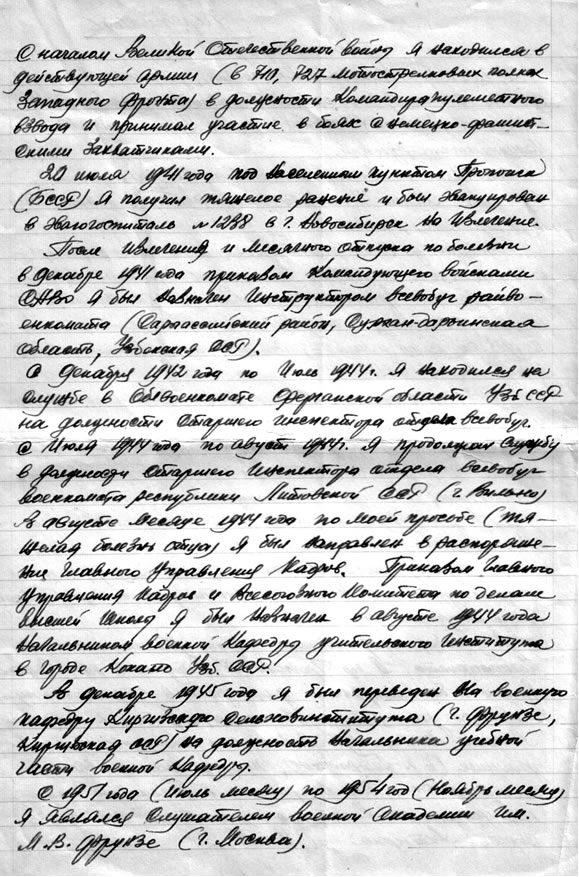 С началом Великой Отечественной войны я находился в
действующей армии (в 710, 727 мотострелковых полках
Западного фронта) в должности командира пулеметного
взвода и принимал участие в боях с немецко-фашист-
скими захватчиками.
20 июля 1941 года под населенным пунктом Пропойск
(БССР) я получил тяжелое ранение и был эвакуирован
в эвакогоспиталь №1238 в г. Новосибирск на излечение.
После излечения и месячного отпуска по болезни
в декабре 1941 года приказом командующего войсками
САВО я был назначен инструктором всевобуч райво-
енкомата (Сариассийский район, Сурхан-Дарьинская
область, Узбекская ССР).
С декабря 1942 года по июль 1944г. я находился на
службе в облвоенкомате Ферганской области Узб ССР
на должности старшего инспектора отдела всевобуч.
С июля 1944 года по август 1944г. я продолжал службу
в должности старшего инспектора отдела всевобуч
военкомата республики Литовской ССР (г. Вильно)
В августе месяце 1944 года по моей просьбе (тя-
желая болезнь отца) я был направлен в распоряже-
ние Главного Управления Кадров. Приказом Главного
Управления Кадров и Всесоюзного Комитета по делам
высшей школы я был назначен в августе 1944 года
начальником военной кафедры учительского института
в городе Коканд Узб. ССР.
В декабре 1945 года я был переведен на военную
кафедру Киргизского сельхозинститута (г. Фрунзе,
Киргизская ССР) на должность начальника учебной
части военной кафедры.
С 1951 года (июль месяц) по 1954 год (ноябрь месяц)
я являлся слушателем военной академии им.
М.В. Фрунзе (г. Москва).